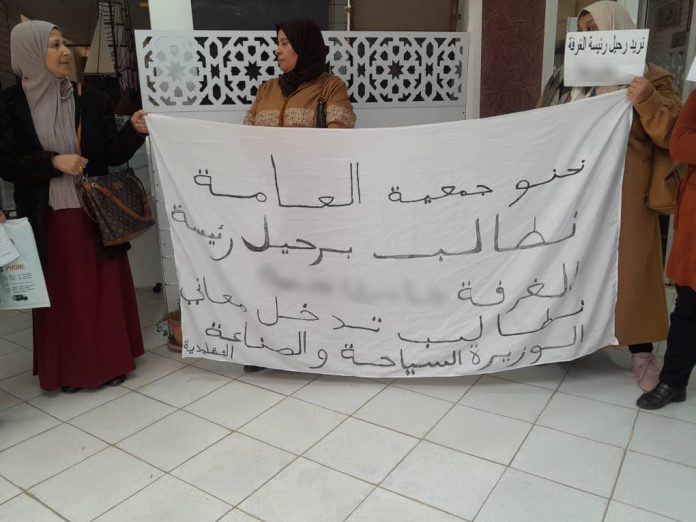 نريد رحيل رئيسة الغرفة
نحنو جمعية العامة
نطالب برحيل رئيسة
الغرفة
نطالب تدخل معالي
الوزيرة السياحة والصناعة
التقليدية
PHONE